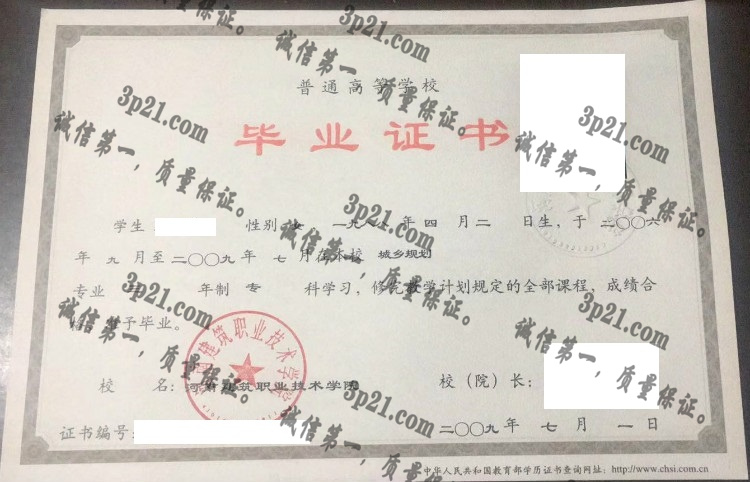 普通高等学校
毕业证书
学生 性别 女 一九八 年 四 月 二 日生，于 二〇〇六
年 九 月至 二〇〇九 年 七 月在本校 城乡规划
专业 年制 专 科学习，修完教学计划规定的全部课程，成绩合
格，准予毕业。
校 名：河南建筑职业技术学院
校（院）长：
证书编号：
二〇〇九 年 七 月 一 日
中华人民共和国教育部学历证书查询网址：http://www.chsi.com.cn
河南建筑职业技术学院
3p21.com
诚信第一，质量保证。
3p21.com
诚信第一，质量保证。
3p21.com
诚信第一，质量保证。
3p21.com
诚信第一，质量保证。
3p21.com
诚信第一，质量保证。
3p21.com
诚信第一，质量保证。
3p21.com
诚信第一，质量保证。
3p21.com
诚信第一，质量保证。
质量保证。